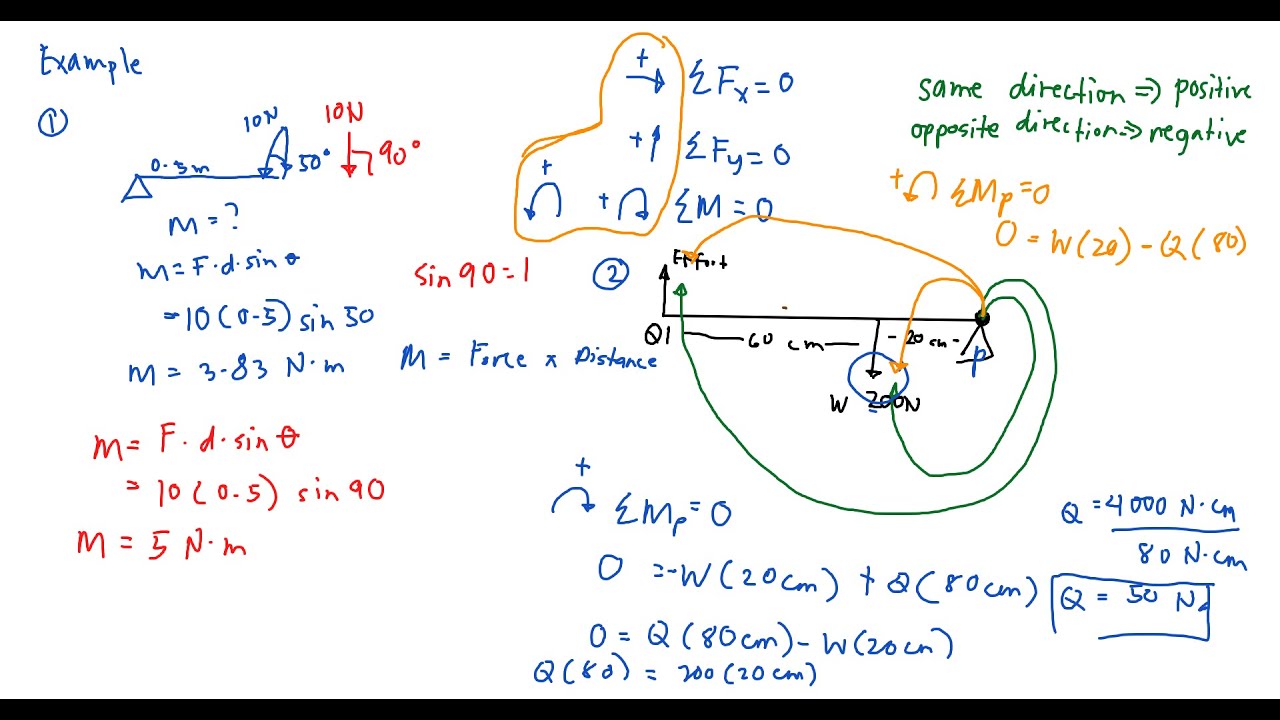 Example
①
10N
0.5m
50°
10N
90°
M = ?
M = F·d·sin θ
= 10(0.5) sin 50
M = 3.83 N·m
M = F·d·sin θ
= 10(0.5) sin 90
M = 5 N·m
sin 90 = 1
M = Force x Distance
+ → ΣFx = 0
+ ↑ ΣFy = 0
+ + ΣM = 0
same direction => positive
opposite direction => negative
+ ΣMp = 0
0 = W(20) - Q(80)
②
Effort
Q1
60 cm
20 cm
P
W 200N
+
ΣMp = 0
0 = -W(20cm) + Q(80cm)
0 = Q(80cm) - W(20cm)
Q(80) = 200(20cm)
Q = 4000 N·cm
80 N·cm
Q = 50 N